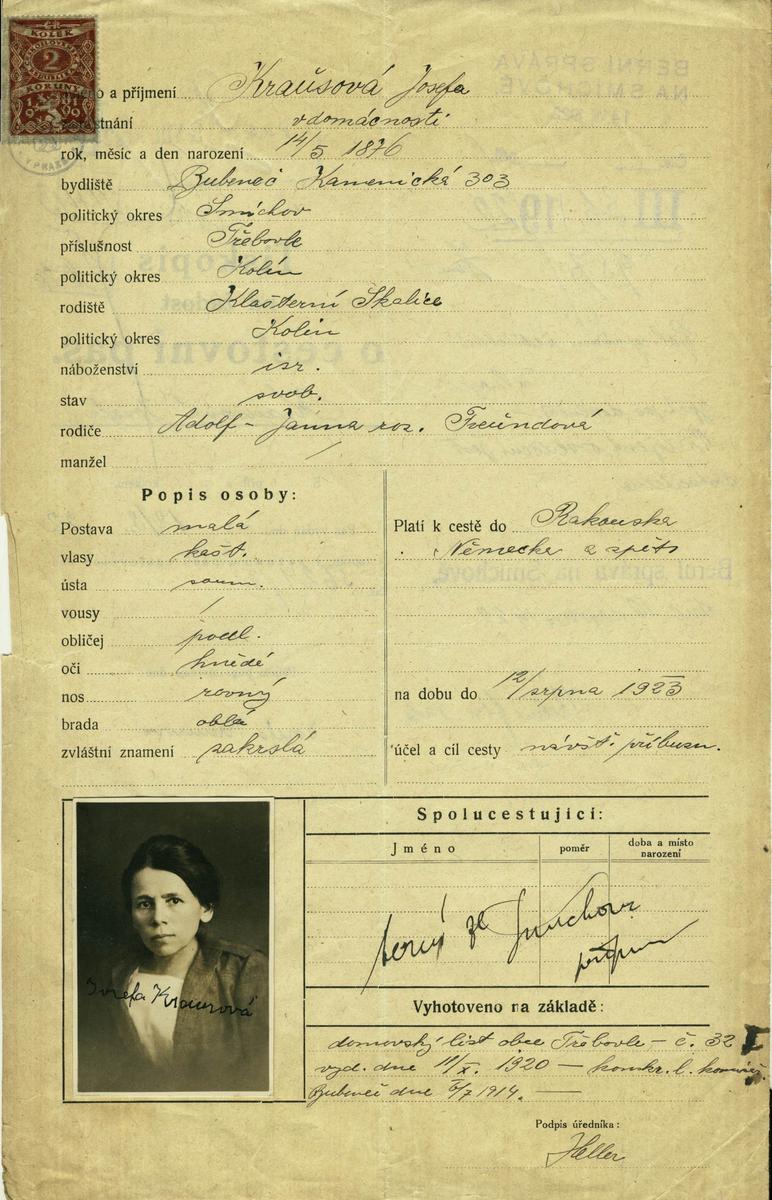 KOLEK
2
KORUNY
jméno a příjmení Kraüsová Josefa
zaměstnání v domácnosti
rok, měsíc a den narození 14/5 1876
bydliště Bubeneč Kamenická 303
politický okres Smíchov
příslušnost Třebovle
politický okres Kolín
rodiště Klášterní Skalice
politický okres Kolín
náboženství isr.
stav svob.
rodiče Adolf - Janna roz. Freündová
manžel /
Popis osoby:
Postava malá
vlasy kašt.
ústa soum.
vousy /
obličej podl.
oči hnědé
nos rovný
brada oblá
zvláštní znamení zakrslá
Platí k cestě do Rakouska
Německa a zpět
na dobu do 12/srpna 1923
účel a cíl cesty návšt. příbuzn.
Josefa Krausová
Spolucestující:
Jméno poměr doba a místo narození
Smíchova
Vyhotoveno na základě:
domovský list obce Třebovle - č. 32
vyd. dne 11/X. 1920 - konskr. l.
Bubeneč dne 6/7 1914. -
Podpis úředníka:
Heller